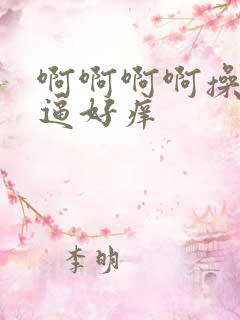 啊啊啊啊操
逼好痒
李明